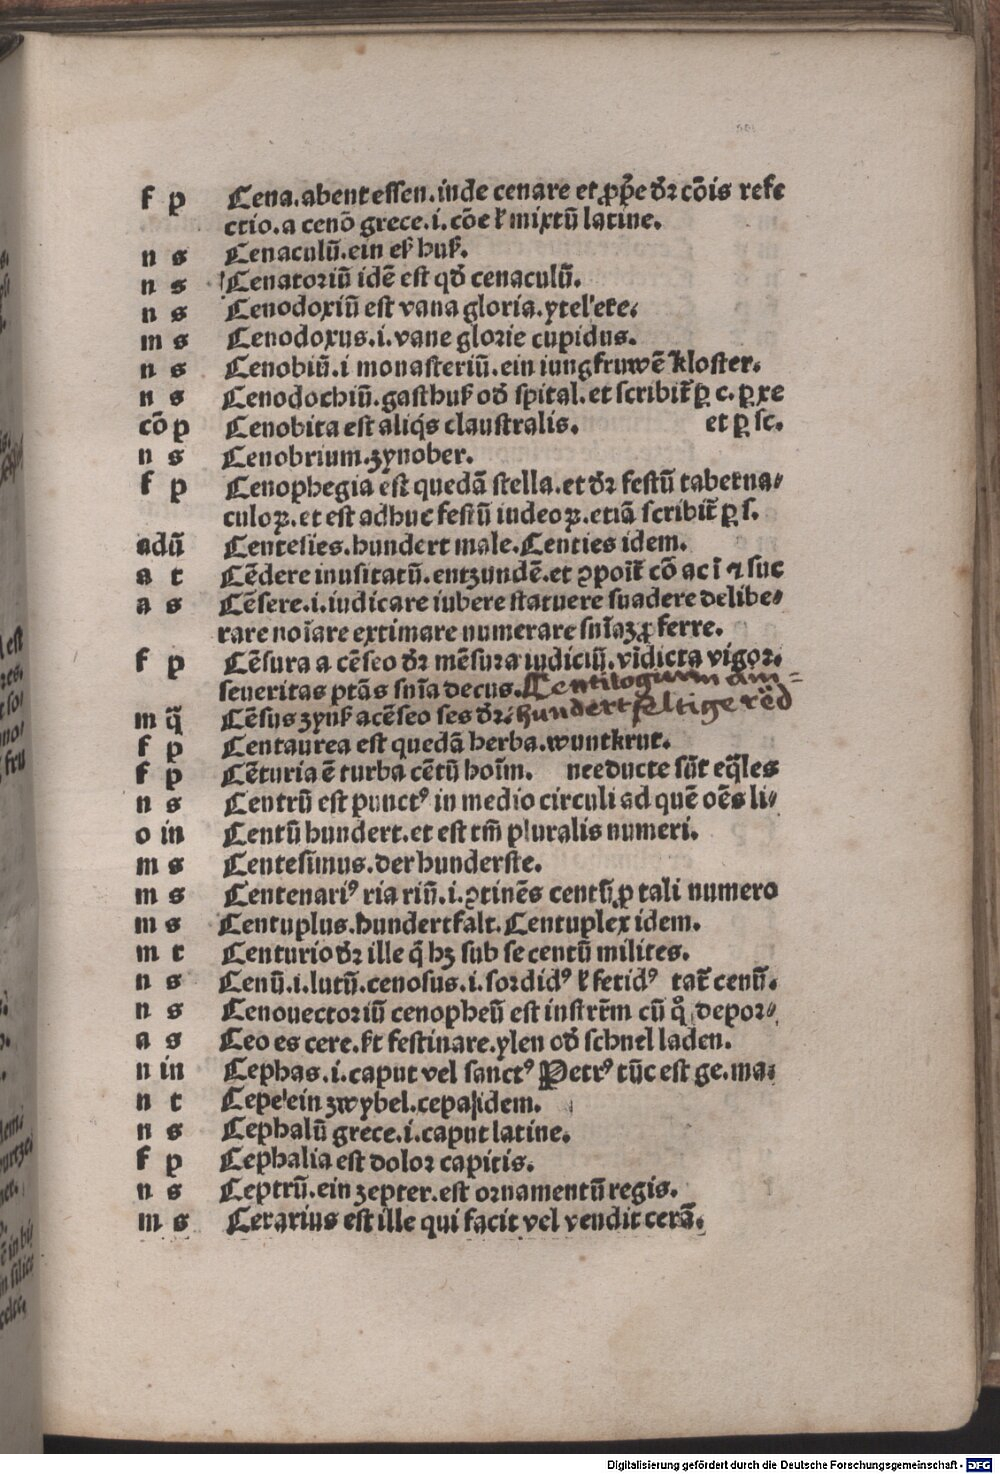 f p Cena.abent essen.inde cenare et ꝓpe dr̃ cōis refe
ctio.a cenō grece.i.cōe ł mixtū latine.
n s Cenaculū.ein eſz huſz.
n s Cenatoriū idē est qđ cenaculū.
n s Cenodoxiū est vana gloria.ytel'ere.
m s Cenodoxus.i.vane glorie cupidus.
n s Cenobiū.i monasteriū.ein iungfruwē kloster.
n s Cenodochiū.gasthuſz ođ spital.et scribit̃ ꝑ c.ꝑ xe
cō p Cenobita est aliq̄s claustralis. et ꝑ sc.
n s Cenobrium.zynober.
f p Cenophegia est quedā stella.et dr̃ festū taberna⸗
culoꝝ.et est adhuc festū iudeoꝝ.etiā scribit̃ ꝑ s.
adū Centesies.hundert male.Centies idem.
a t Cēdere inusitatū.entzundē.et ꝯpoit̃ cō ac ī ⁊ suc
a s Cēsere.i.iudicare iubere statuere suadere delibe⸗
rare noīare extimare numerare snīaꝫ ꝓferre.
f p Cēsura a cēseo dr̃ mēsura iudiciū.vīdicta vigor.
seueritas ptās snīa decus. Centilogium am⸗
m q̄ Cēsus zynſz a cēseo ses dr̃. hundertfeltige red
f p Centaurea est quedā herba.wuntkrut.
f p Cēturia ē turba cētū hoīm. nee ducte sūt eq̄les
n s Centrū est punctꝰ in medio circuli ad quē oēs li⸗
o in Centū hundert.et est tm̄ pluralis numeri.
m s Centesimus.der hunderste.
m s Centenariꝰ ria riū.i.ꝯtinēs centū ꝓ tali numero
m s Centuplus.hundertfalt.Centuplex idem.
m t Centurio dr̃ ille q̄ hꝫ sub se centū milites.
n s Cenū.i.lutū.cenosus.i.sordidꝰ ł fetidꝰ tat̃ cenū.
n s Cenouectoriū cenopheū est instrm̄ cū qͦ depor⸗
a s Ceo es cere.ſzt festinare.ylen ođ schnel laden.
n in Cephas.i.caput vel sanctꝰ Petrꝰ tūc est ge.ma.
n t Cepe ein zwybel.cepa idem.
n s Cephalū grece.i.caput latine.
f p Cephalia est dolor capitis.
n s Ceptrū.ein zepter.est ornamentū regis.
m s Cerarius est ille qui facit vel vendit cerā.
Digitalisierung gefördert durch die Deutsche Forschungsgemeinschaft - DFG